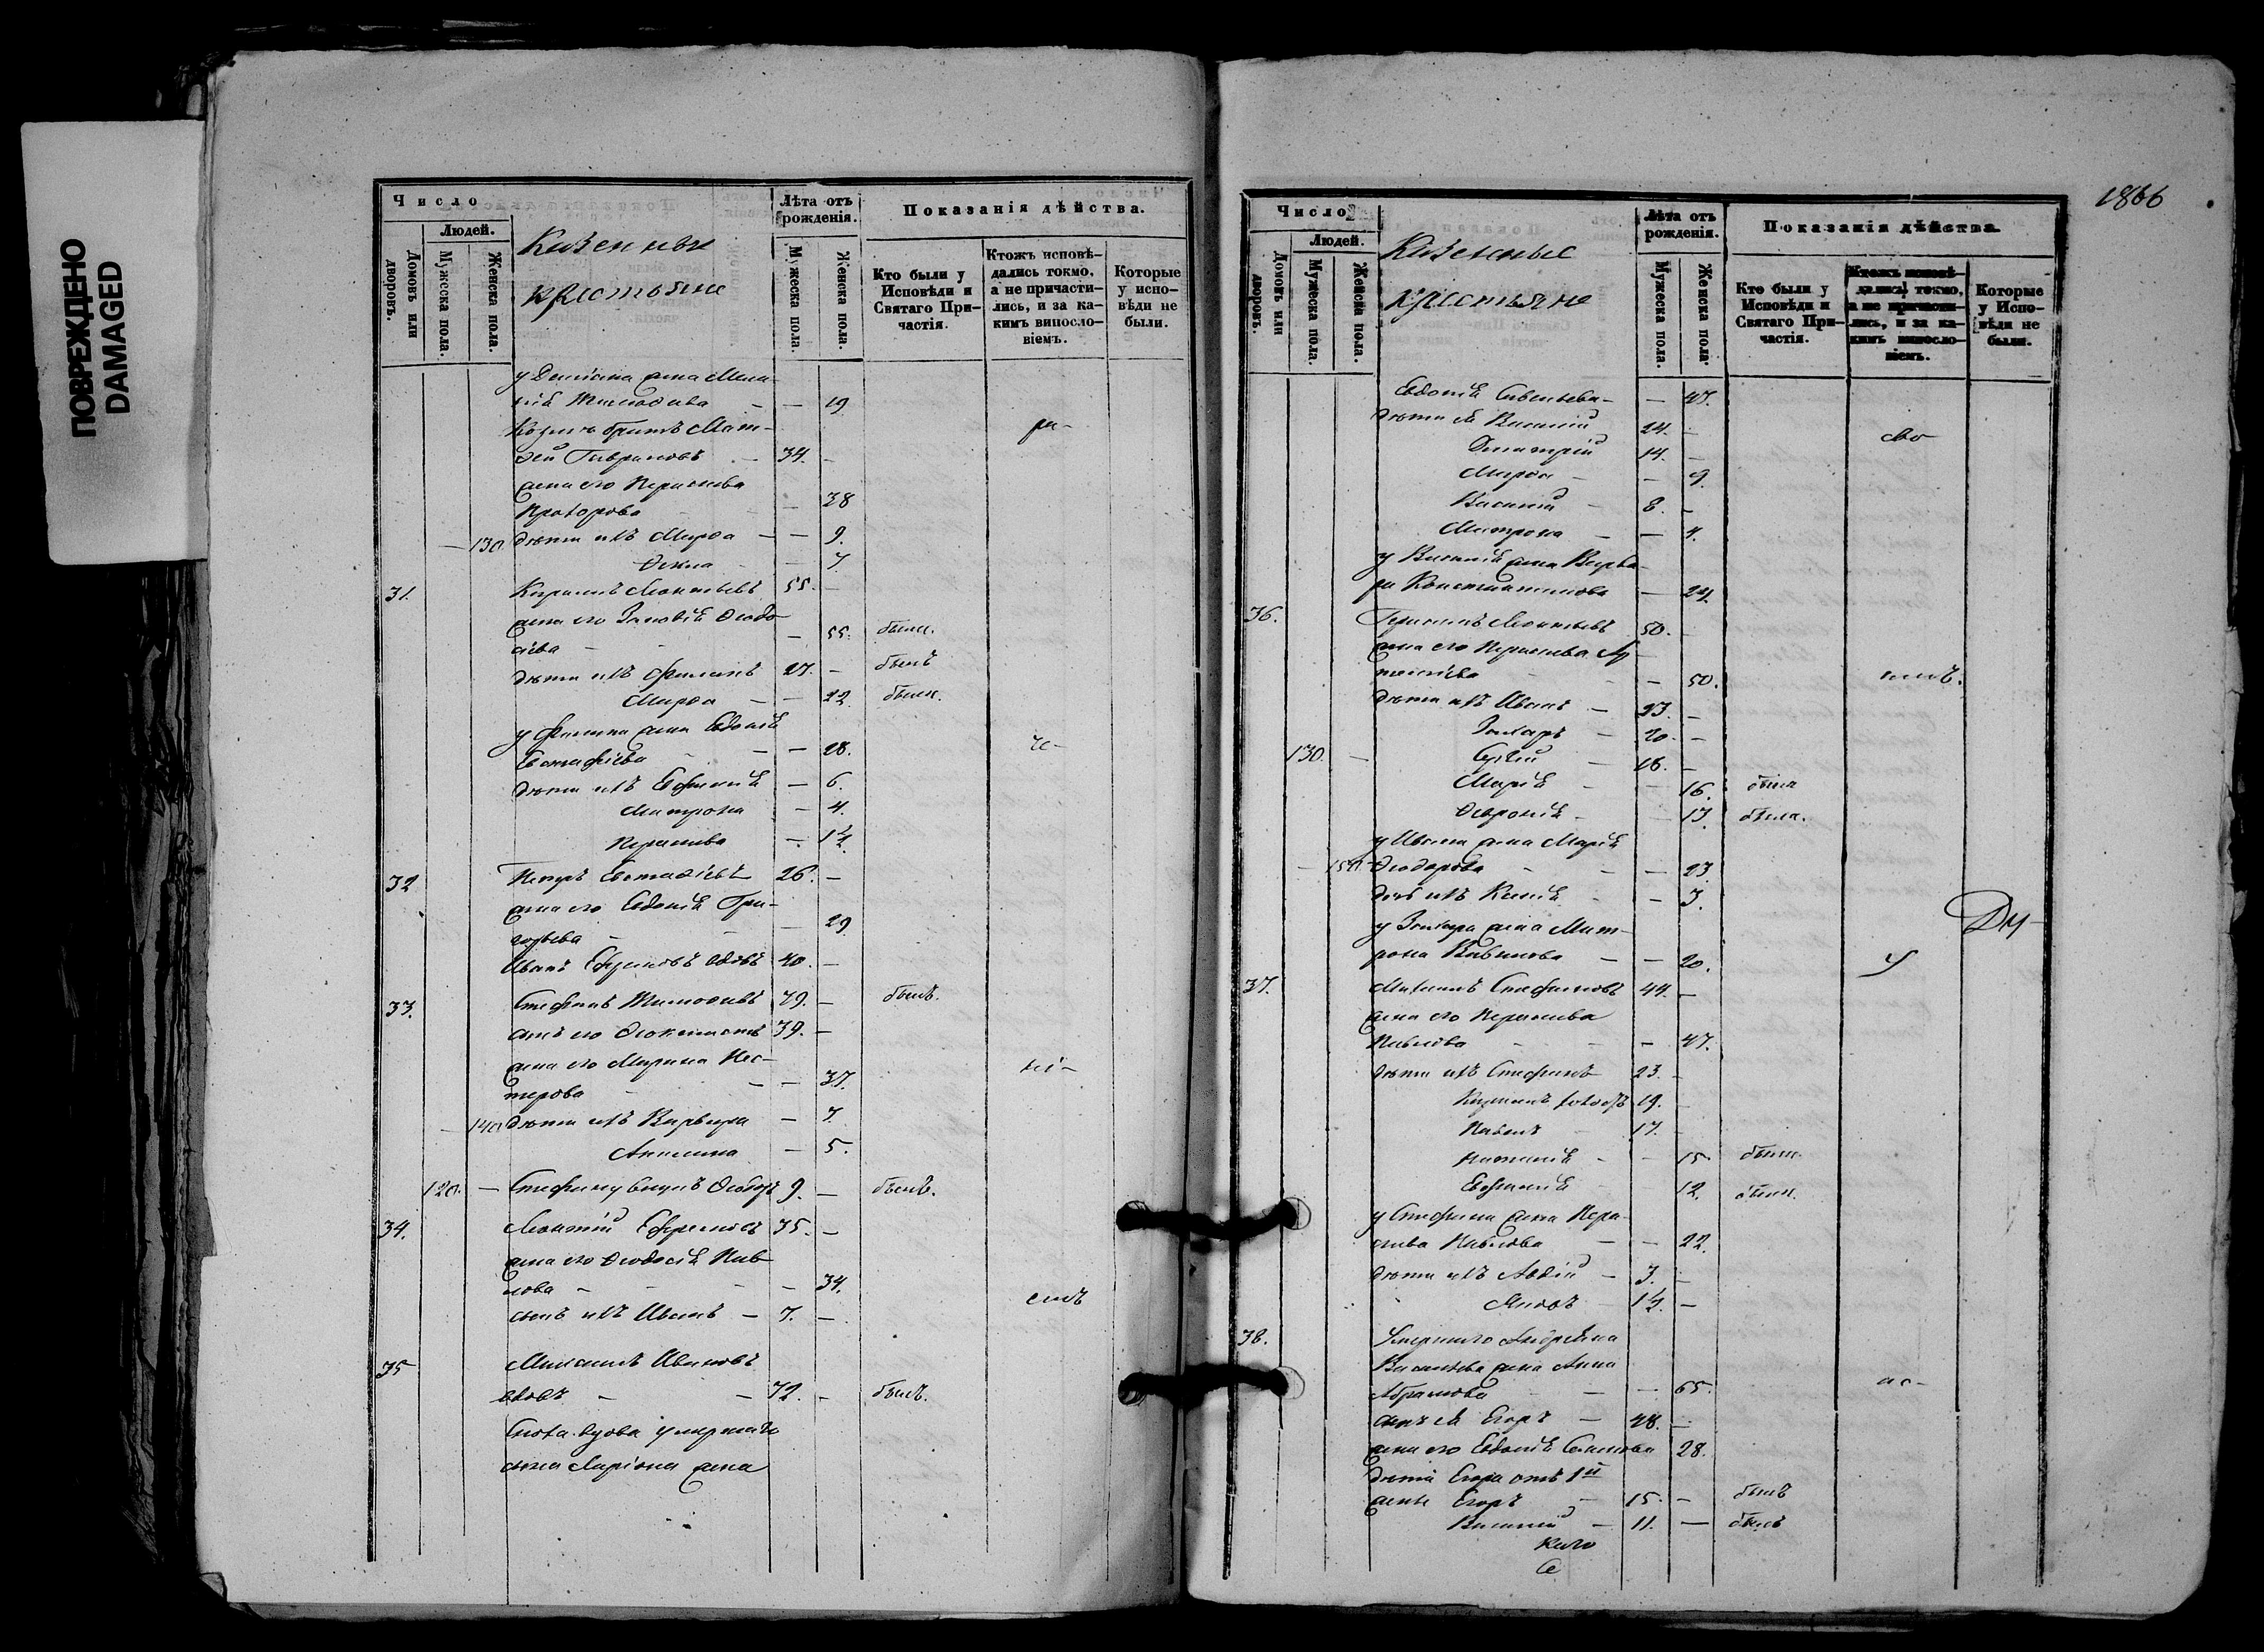 ПОВРЕЖДЕНО
DAMAGED
Число
Людей.
Домовъ или дворовъ.
Мужеска пола.
Женска пола.
Казенные
крестьяне
Лѣта отъ рожденія.
Мужеска пола.
Женска пола.
Показанія дѣйства.
Кто были у Исповѣди и Святаго Причастія.
Ктожъ исповѣдались токмо, а не причастились, и за какимъ винословіемъ.
Которые у исповѣди не были.
у жена
— — 19
братъ Мат-
ѳей Гавриловъ — 34. — ра-
жена его Параскева
— — 38
— 130 дѣти ихъ Марѳа — — 9.
Ѳекла — — 7
31. Леонтьевъ 55. —
жена его Зиновія Ѳеодо-
— 55. была.
дѣти ихъ Филипъ 27. — былъ
Марѳа — — 22. была.
у Филипа жена Евдокія
Евстафіева — — 28. зс-
дѣти ихъ Евфимія — 6.
Матрона — 4.
Параскева — 1½
32 Петръ 26. —
жена его Евдокія Гри-
горьева — — 29
Иванъ Ефремовъ вдовъ 40. —
33. Стефанъ Тимоѳеевъ 79. — былъ.
сынъ его Ѳеоктистъ 39. —
жена его Марина Нес-
терова — — 37.
— 140 дѣти ихъ Варвара — 7.
Акилина — 5.
120. — Стефану внукъ Ѳеодоръ 9. — былъ.
34. Леонтій Ефремовъ 35. —
жена его Ѳеодосія Пав-
лова — — 34.
сынъ ихъ Иванъ — 7. —
35 Ивановъ
вдовъ — — 72. — былъ.
Сноха вдова умершаго
сына Ларіона жена
1866
Число
Людей.
Домовъ или дворовъ.
Мужеска пола.
Женска пола.
Казенные
крестьяне
Лѣта отъ рожденія.
Мужеска пола.
Женска пола.
Показанія дѣйства.
Кто были у Исповѣди и Святаго Причастія.
Ктожъ исповѣдались токмо, а не причастились, и за какимъ винословіемъ.
Которые у Исповѣди не были.
Евдокія Савельева — — 47.
дѣти ея Василій 24. —
Димитрій 14. —
Марѳа — — 9.
Василій — 8. —
Матрона — — 4.
у Василія жена Варва-
ра Константинова — 24.
36. Герасимъ Леонтьевъ 50. —
жена его Параскева
— — 50.
дѣти ихъ Иванъ — 23. —
Захаръ — 20. —
130. — Сергій — 18. —
Марія — — 16. была
Февронія — 13. была.
у Ивана жена Марія
— 150 Ѳеодорова — — 23.
дочь ихъ Ксенія — 3.
у Захара жена Мат-
рона — — 20. у Ду-
37. Стефановъ 44. —
жена его Параскева
Павлова — — 47.
дѣти ихъ Стефанъ 23. —
холостъ 19. —
Павелъ — 17. —
Наталія — — 15. была.
Евфимія 12. была.
у Стефана жена Пара-
скева Павлова — — 22.
дѣти ихъ Авдій — 3. —
Яковъ — 1½. —
38. Умершаго Андреяна
Васильева жена Анна
Абрамова — — 65. ас-
сынъ ея Егоръ — 48. —
жена его Евдокія Семенова 28.
дѣти Егора отъ 1й
жены Егоръ — 15. — былъ
Василій — 11. — былъ